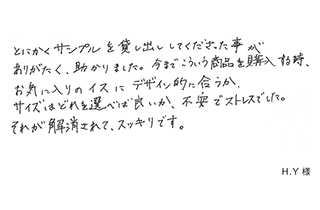 とにかくサンプルを貸し出ししてくださった事が
ありがたく、助かりました。今までこういう商品を購入する時、
お気に入りのイスにデザイン的に合うか、
サイズはどれを選べば良いか、不安でストレスでした。
それが解消されて、スッキリです。
H.Y 様